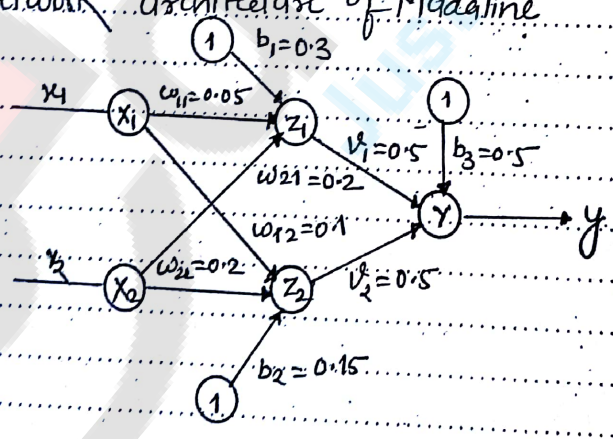 architecture of Madaline
1 b₁=0.3
x₁ X₁ w₁₁=0.05 Z₁ 1
v₁=0.5 b₃=0.5
w21=0.2
Y y
w₁₂=0.1
x₂ X₂ w₂₂=0.2 Z₂ v₂=0.5
b₂=0.15
1